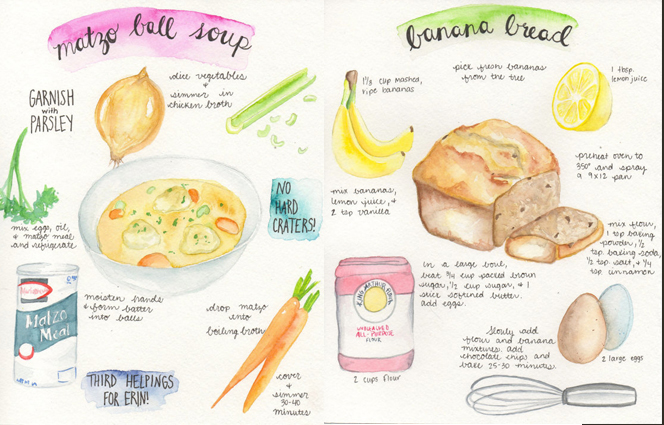 matzo ball soup
dice vegetables
&
simmer in
chicken broth
GARNISH
with
PARSLEY
NO
HARD
CRATERS!
mix eggs, oil,
& matzo meal
and refrigerate
Matzo
Meal
moisten hands
& form batter
into balls
drop matzo
into
boiling broth
THIRD HELPINGS
FOR ERIN!
cover
&
simmer
30-40
minutes
banana bread
1 1/3 cup mashed,
ripe bananas
pick fresh bananas
from the tree
1 tbsp.
lemon juice
preheat oven to
350° and spray
a 9x12 pan
mix bananas,
lemon juice, &
2 tsp vanilla
mix flour,
1 tsp baking
powder, 1/2
tsp. baking soda,
1/2 tsp. salt, & 1/4
tsp cinnamon
in a large bowl,
beat 3/4 cup packed brown
sugar, 1/2 cup sugar, & 1
stick softened butter.
add eggs.
KING ARTHUR FLOUR
UNBLEACHED
ALL-PURPOSE
FLOUR
2 cups flour
slowly add
flour and banana
mixtures. add
chocolate chips and
bake 25-30 minutes.
2 large eggs